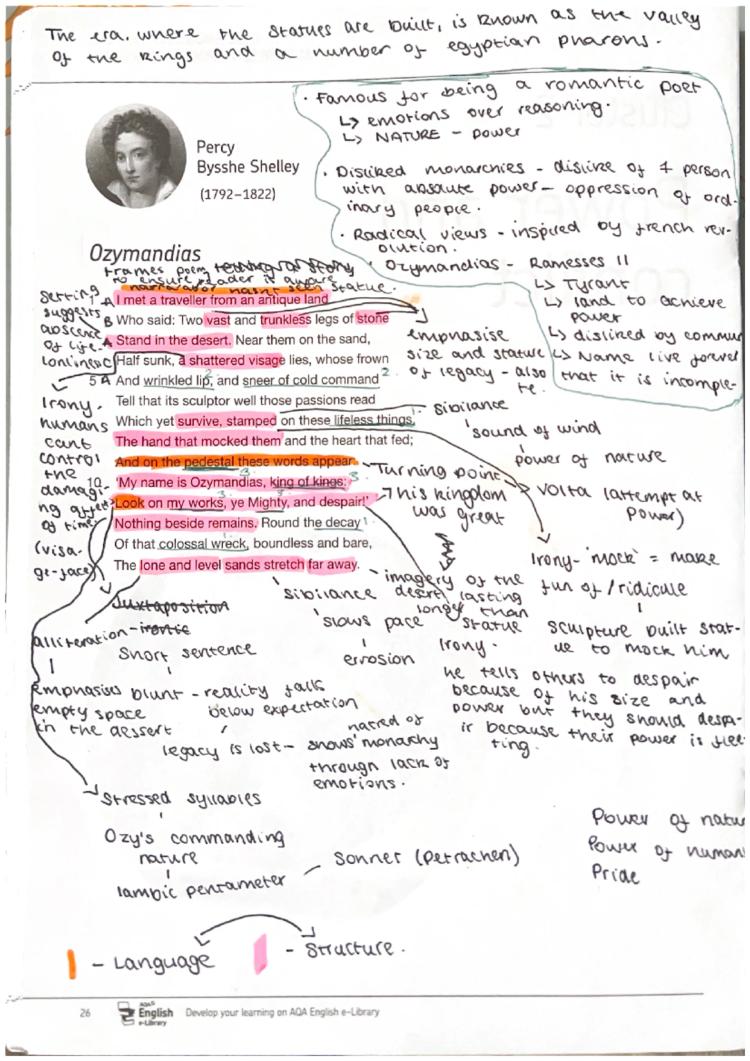 The era, where the statues are built, is known as the valley
of the kings and a number of egyptian pharons.
· Famous for being a romantic poet
↳ emotions over reasoning.
↳ NATURE - power
· Disliked monarchies - dislike of 1 person
with absolute power - oppression of ord-
inary people.
· Radical views - inspired by french rev-
olution.
· Ozymandias - Ramesses II
↳ Tyrant
↳ land to achieve
power
↳ disliked by commun
↳ Name live forever
Percy
Bysshe Shelley
(1792–1822)
Ozymandias
frames poem, telling a story
to ensure reader is aware
narrator hasn't seen statue.
Setting
suggests
abscence
of life.
Lonliness
A I met a traveller from an antique land
B Who said: Two vast and trunkless legs of stone
A Stand in the desert. Near them on the sand,
C Half sunk, a shattered visage lies, whose frown
5 A And wrinkled lip, and sneer of cold command
Tell that its sculptor well those passions read
Which yet survive, stamped on these lifeless things,
The hand that mocked them and the heart that fed;
And on the pedestal these words appear:
10 'My name is Ozymandias, king of kings:
Look on my works, ye Mighty, and despair!'
Nothing beside remains. Round the decay
Of that colossal wreck, boundless and bare,
The lone and level sands stretch far away.
emphasise
size and stature
of legacy - also
that it is incomple-
te.
Irony -
humans
cant
control
the
damagi-
ng affect
of time
(visa-
ge-face)
sibilance
sound of wind
power of nature
Turning point
Volta (attempt at
power)
His kingdom
was great
Irony - 'mock' = make
fun of / ridicule
sculpture built stat-
ue to mock him
imagery of the
desert lasting
longer than
statue
Irony -
he tells others to despair
because of his size and
power but they should despa-
ir because their power is flee-
ting.
sibilance
slows pace
errosion
Juxtaposition
alliteration - ironic
emphasises blunt
empty space
in the dessert
Short sentence
reality falls
below expectation
legacy is lost
hatred of
shows monarchy
through lack of
emotions.
Stressed syllables
Ozy's commanding
nature
Iambic pentameter
Sonnet (petrachen)
Power of natur
Power of human
Pride
- Language
- Structure.
26
AQA
English
e-Library
Develop your learning on AQA English e-Library